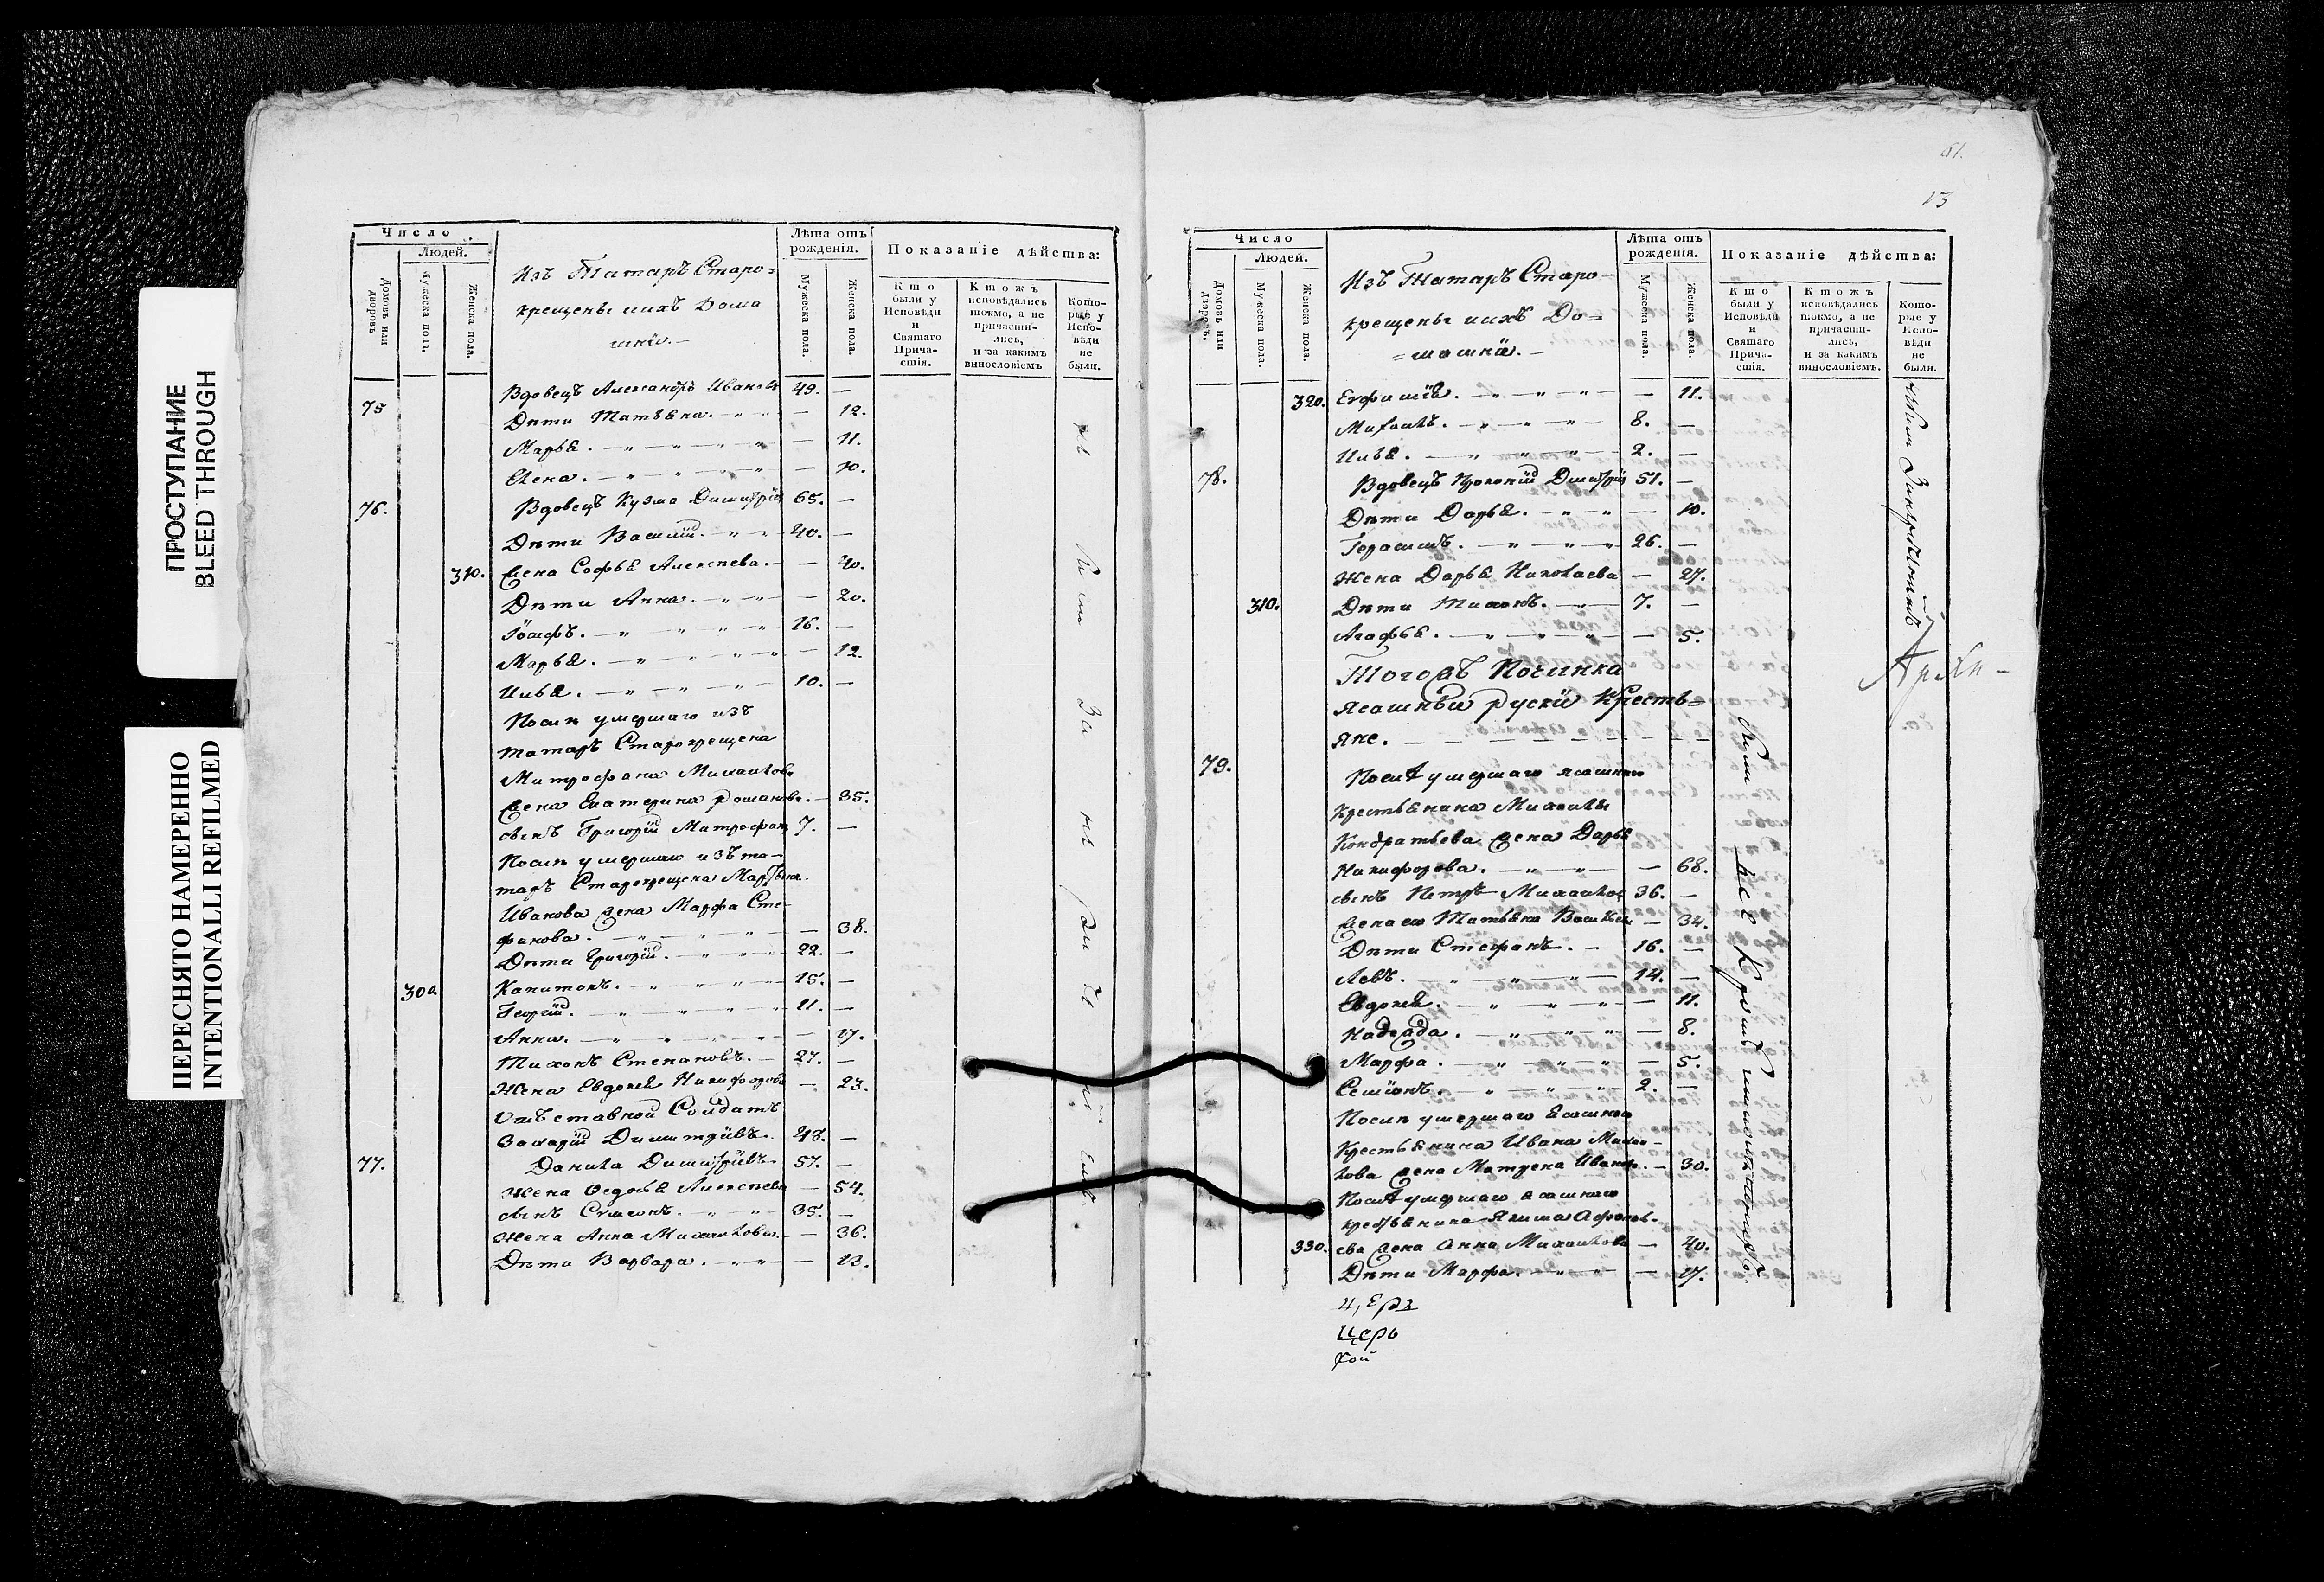 ПРОСТУПАНИЕ
BLEED THROUGH
ПЕРЕСНЯТО НАМЕРЕННО
INTENTIONALLI REFILMED
Число
Людей.
Домовъ или дворовъ
Мужеска пола.
Женска пола.
Изъ Татаръ Старо=
крещеныхъ Дома
шнiи.—
Лѣта отъ рожденiя.
Мужеска пола.
Женска пола.
Показанiе дѣйства:
Кто были у Исповѣди и Святаго Прича-стiя.
Ктожъ исповѣдались токмо, а не причасти-лись, и за какимъ винословiемъ
Кото-рые у Испо-вѣди не были.
75 Вдовецъ Александръ Иванов 49. —
Дѣти Татьяна. — 12.
Марья. — 11.
Елена. — 10.
76. Вдовецъ Кузма Димитрiев 65. —
Дѣти Василiй. 40. —
310. Жена Софья Алексѣева. — 40.
Дѣти Анна. — 20.
Iосифъ. 16. —
Марья. — 12.
Илья. 10. —
Послѣ умершаго изъ
татаръ Старокрещена
Митрофана Михаилова
Жена Екатерина Романова. — 35.
сынъ Григорiй Митрофан 7. —
Послѣ умершаго изъ та-
таръ Старокрещена Мартына
Иванова жена Марфа Сте-
фанова. — 38.
Дѣти Григорiй. 22. —
300. Капитонъ. 15. —
Георгiй. 11. —
Анна. — 17.
Тихонъ Степановъ. 27. —
Жена Евдокiя Никифорова — 23.
Отставной Солдатъ
Захарiй Димитрiевъ. 48. —
77. Данила Димитрiевъ 57. —
Жена Федосья Алексѣева — 54.
сынъ Симеонъ. 35. —
Жена Анна Михаилова. — 36.
Дѣти Варвара. — 13.
61.
13
Число
Людей.
Домовъ или дворовъ.
Мужеска пола.
Женска пола.
Изъ Татаръ Старо-
крещеныхъ До=
=машнiи.—
Лѣта отъ рожденiя.
Мужеска пола.
Женска пола.
Показанiе дѣйства:
Кто были у Исповѣди и Святаго Прича-стiя.
Ктожъ исповѣдались токмо, а не причасти-лись, и за какимъ винословiемъ.
Кото-рые у Испо-вѣди не были.
320. Евфимiя. — 11.
Михаилъ. 8. —
Илья. 2. —
78. Вдовецъ Прокопiй Димитрiев 51. —
Дѣти Дарья. — 10.
Герасимъ. 26. —
Жена Дарья Николаева — 27.
310. Дѣти Тихонъ. 7. —
Агафья. — 5.
Тогожъ Починка
Ясашныи рускiи Кресть=
яне.
79. Послѣ умершаго ясашнаго
крестьянина Михаилы
Кондратьева жена Дарья
Никифорова. — 68.
сынъ Петръ Михаилов 36. —
Жена его Татьяна Васильев — 34.
Дѣти Стефанъ. 16. —
Левъ. 14. —
Евдокiя. — 11.
Надежда. — 8.
Марфа. — 5.
Семiонъ. 2. —
Послѣ умершаго ясашнаго
крестьянина Ивана Михаи-
лова жена Матрена Иванов. — 30.
Послѣ умершаго ясашнаго
крестьянина Якима Афонась-
330. ева жена Анна Михаилова — 40.
Дѣти Марфа. — 17.
Архи-
церь
кои